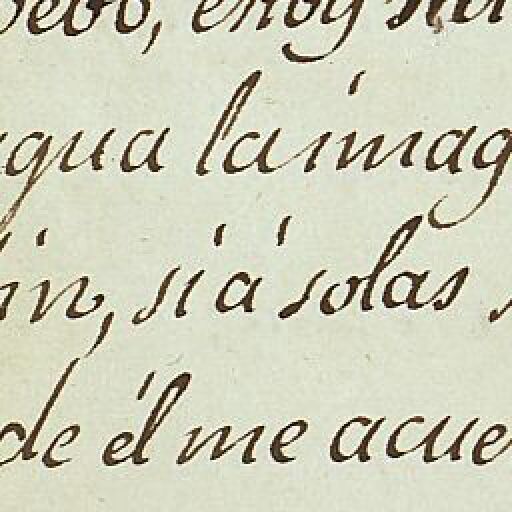 bebo,
agua la imag
in, si á solas
de él me acue